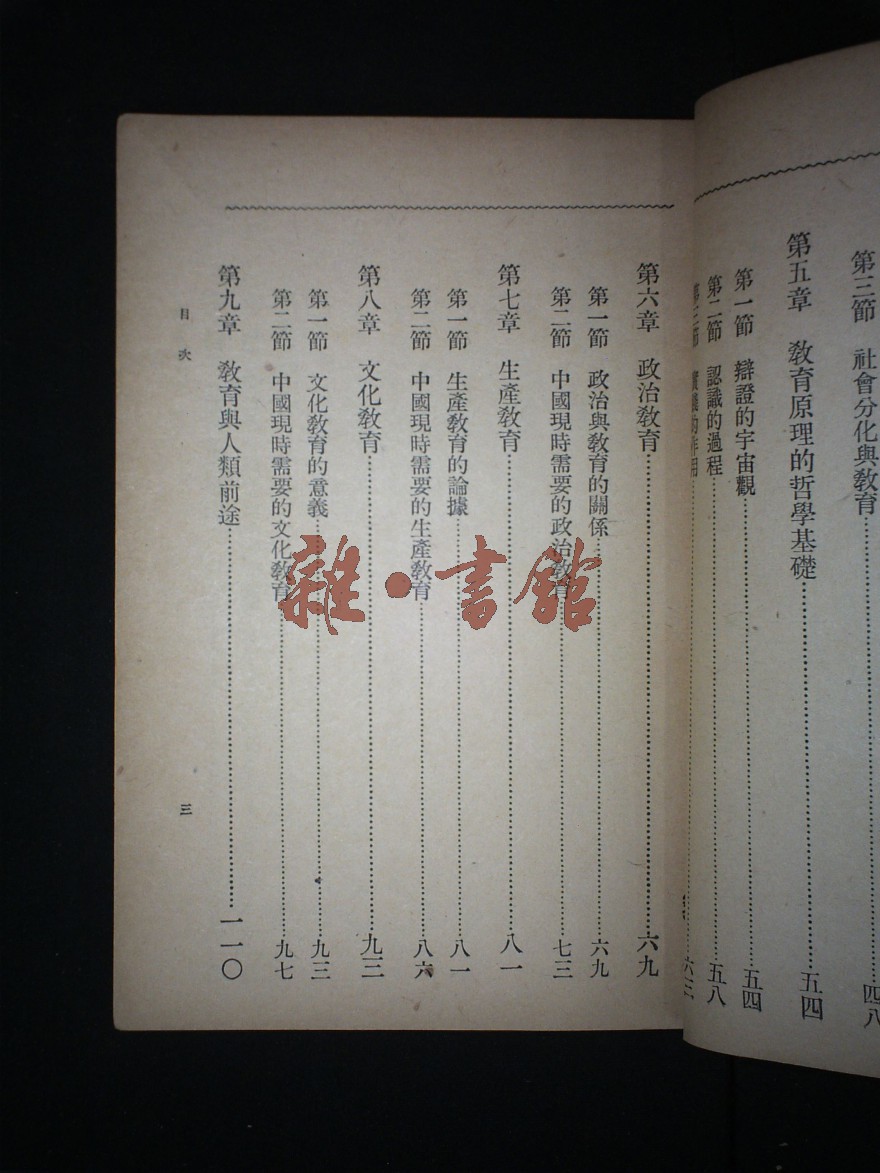 第三節　社會分化與教育……四八
第五章　教育原理的哲學基礎……五四
第一節　辯證的宇宙觀……五四
第二節　認識的過程……五八
第三節　實踐的作用……六三
第六章　政治教育……六九
第一節　政治與教育的關係……六九
第二節　中國現時需要的政治教育……七三
第七章　生產教育……八一
第一節　生產教育的論據……八一
第二節　中國現時需要的生產教育……八六
第八章　文化教育……九三
第一節　文化教育的意義……九三
第二節　中國現時需要的文化教育……九七
第九章　教育與人類前途……一一〇
目次
三
雜·書館